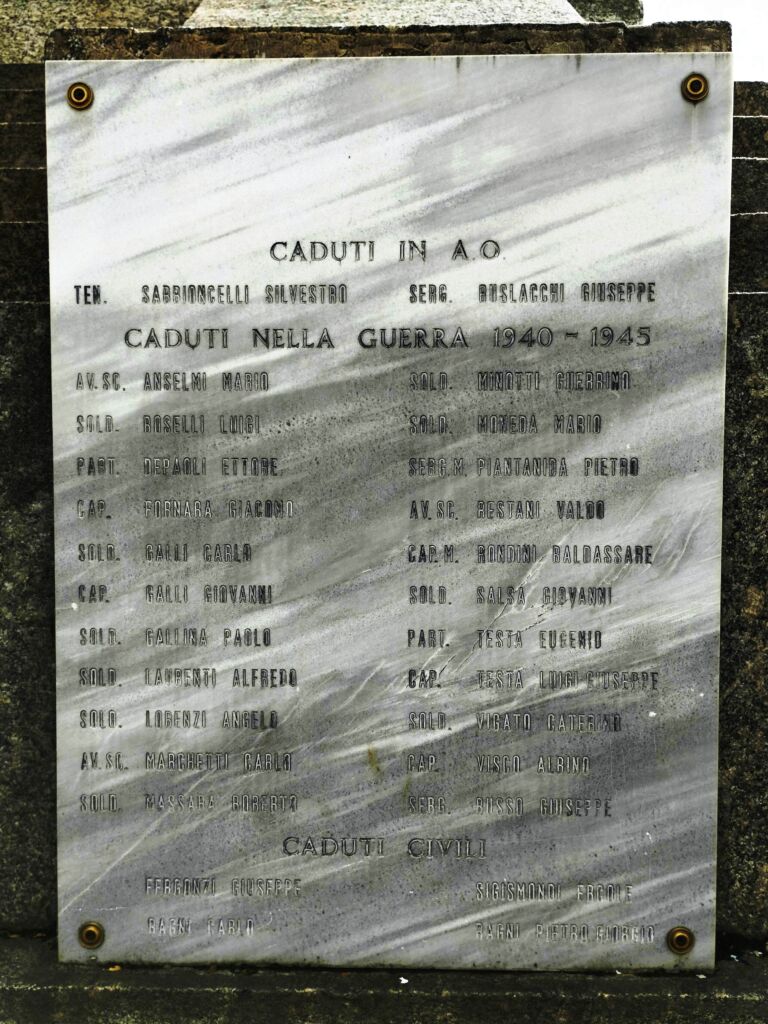 CADUTI IN A.O.
TEN. SABBIONCELLI SILVESTRO SERG. BUSLACCHI GIUSEPPE
CADUTI NELLA GUERRA 1940 - 1945
AV. SC. ANSELMI MARIO SOLD. MINOTTI GUERRINO
SOLD. BOSELLI LUIGI SOLD. MONEDA MARIO
PART. DEPAOLI ETTORE SERG. M. PIANTANIDA PIETRO
CAP. FORNARA GIACOMO AV. SC. RESTANI VALDO
SOLD. GALLI CARLO CAP. M. RONDINI BALDASSARE
CAP. GALLI GIOVANNI SOLD. SALSA GIOVANNI
SOLD. GALLINA PAOLO PART. TESTA EUGENIO
SOLD. LAURENTI ALFREDO CAP. TESTA LUIGI GIUSEPPE
SOLD. LORENZI ANGELO SOLD. VIGATO CATERINO
AV. SC. MARCHETTI CARLO CAP. VISCO ALBINO
SOLD. MASSARA ROBERTO SERG. RUSSO GIUSEPPE
CADUTI CIVILI
FERGONZI GIUSEPPE SIGISMONDI ERCOLE
RAGNI CARLO RAGNI PIETRO GIORGIO